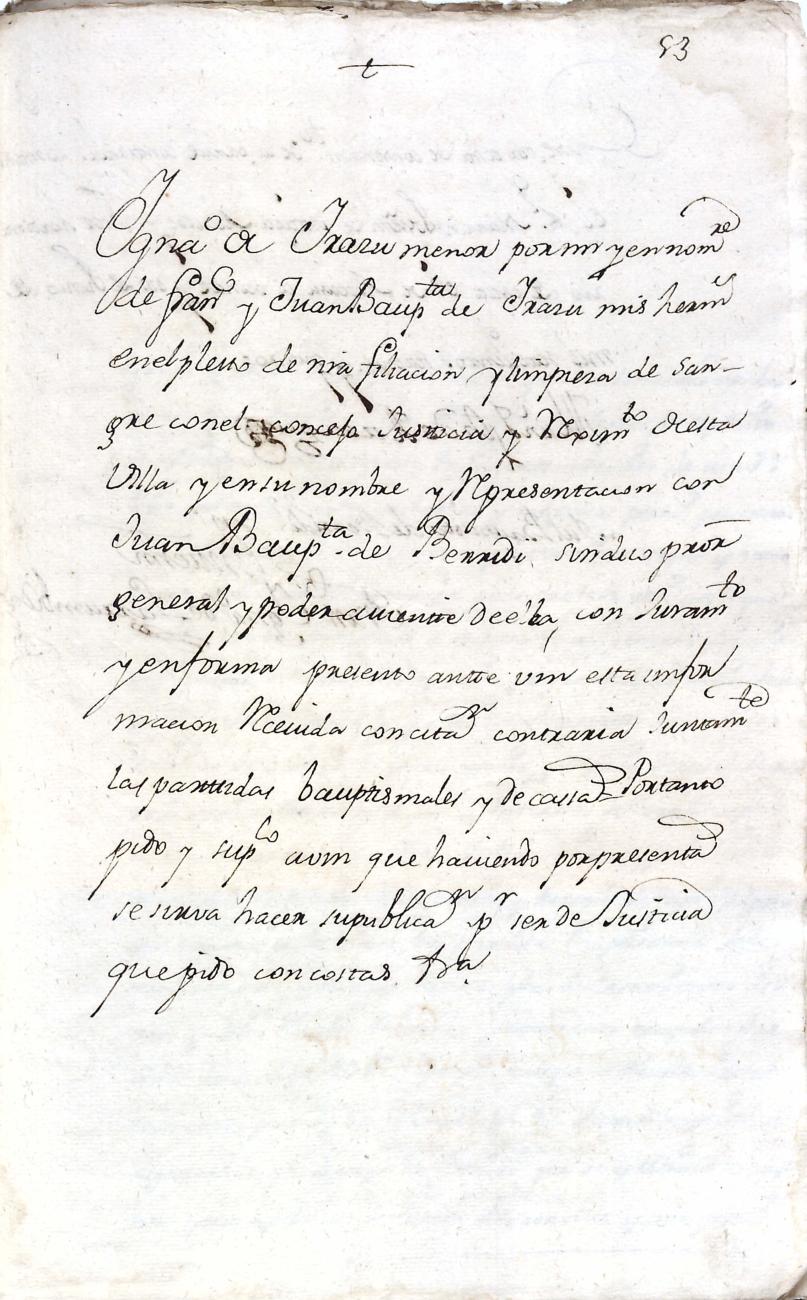 53
t
Ygnaº de Yrazu menor por mi y en nomre
de Franco y Juan Bapta de Yrazu mis hermos
en el pleito de nra filiacion y limpieza de san-
gre con el concejo Justicia y Reximto de esta
Villa y en su nombre y Representacion con
Juan Baupta de Berridi, sindico pror
general y poder auiente de ella, con Juramto
y en forma presento antte vm esta infor
macion Receuida con citaon contraria Juntamte
las parttidas bauptismales y de cassados Por tanto
pido y supco a vm que hauiendo por presentado
se sirva hacer su publicaon pr ser de Justicia
que pido con costas &ra